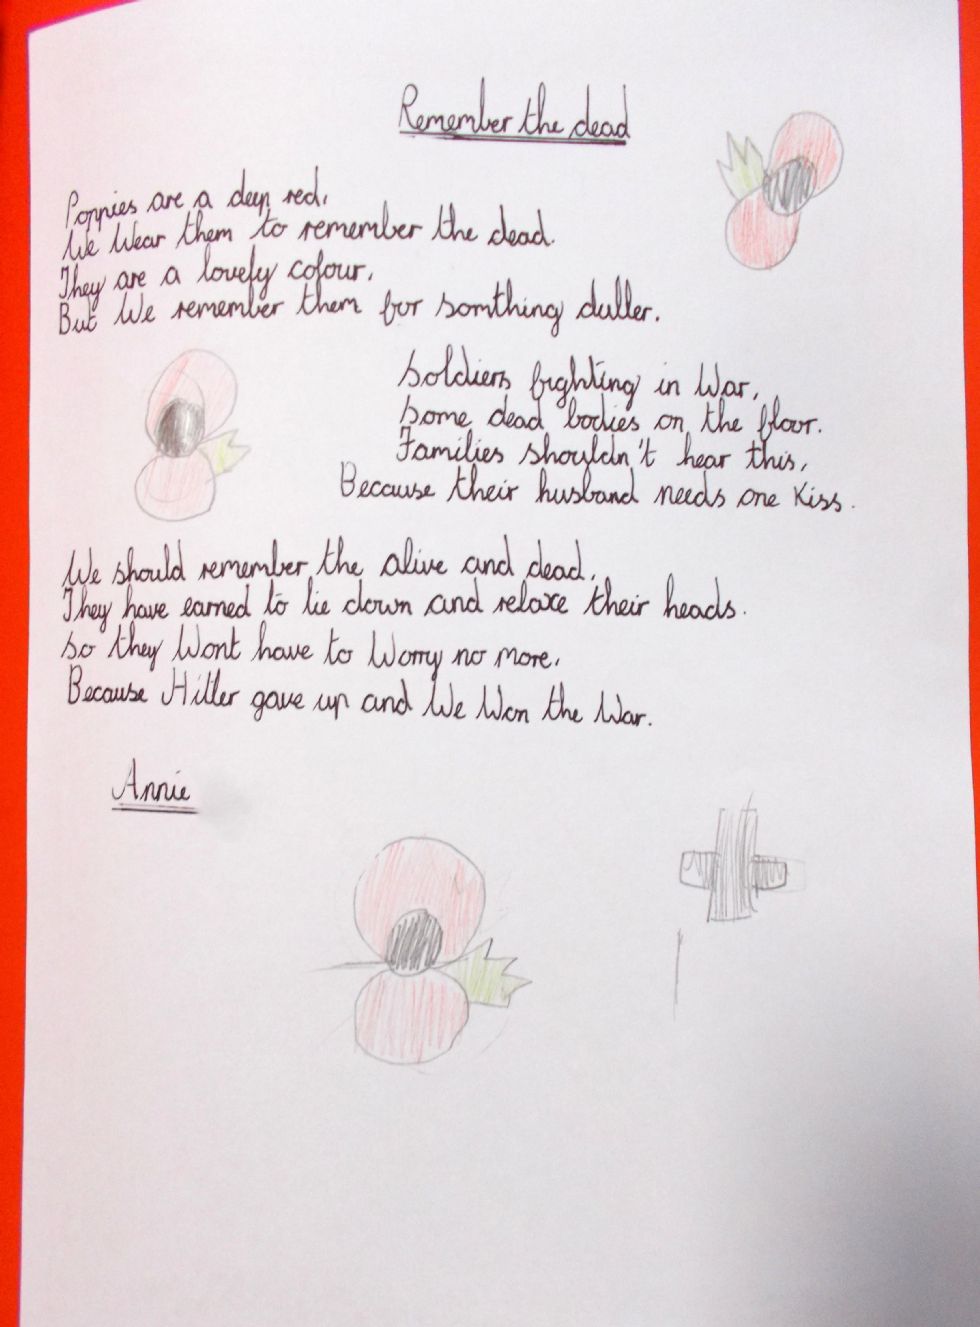 Remember the dead
Poppies are a deep red,
We Wear them to remember the dead.
They are a lovely colour,
But We remember them for somthing duller.
Soldiers fighting in War,
Some dead bodies on the floor.
Families shouldn't hear this,
Because their husband needs one Kiss.
We should remember the alive and dead,
They have earned to lie down and relaxe their heads.
So they Wont have to Worry no more,
Because Hitler gave up and We Won the War.
Annie